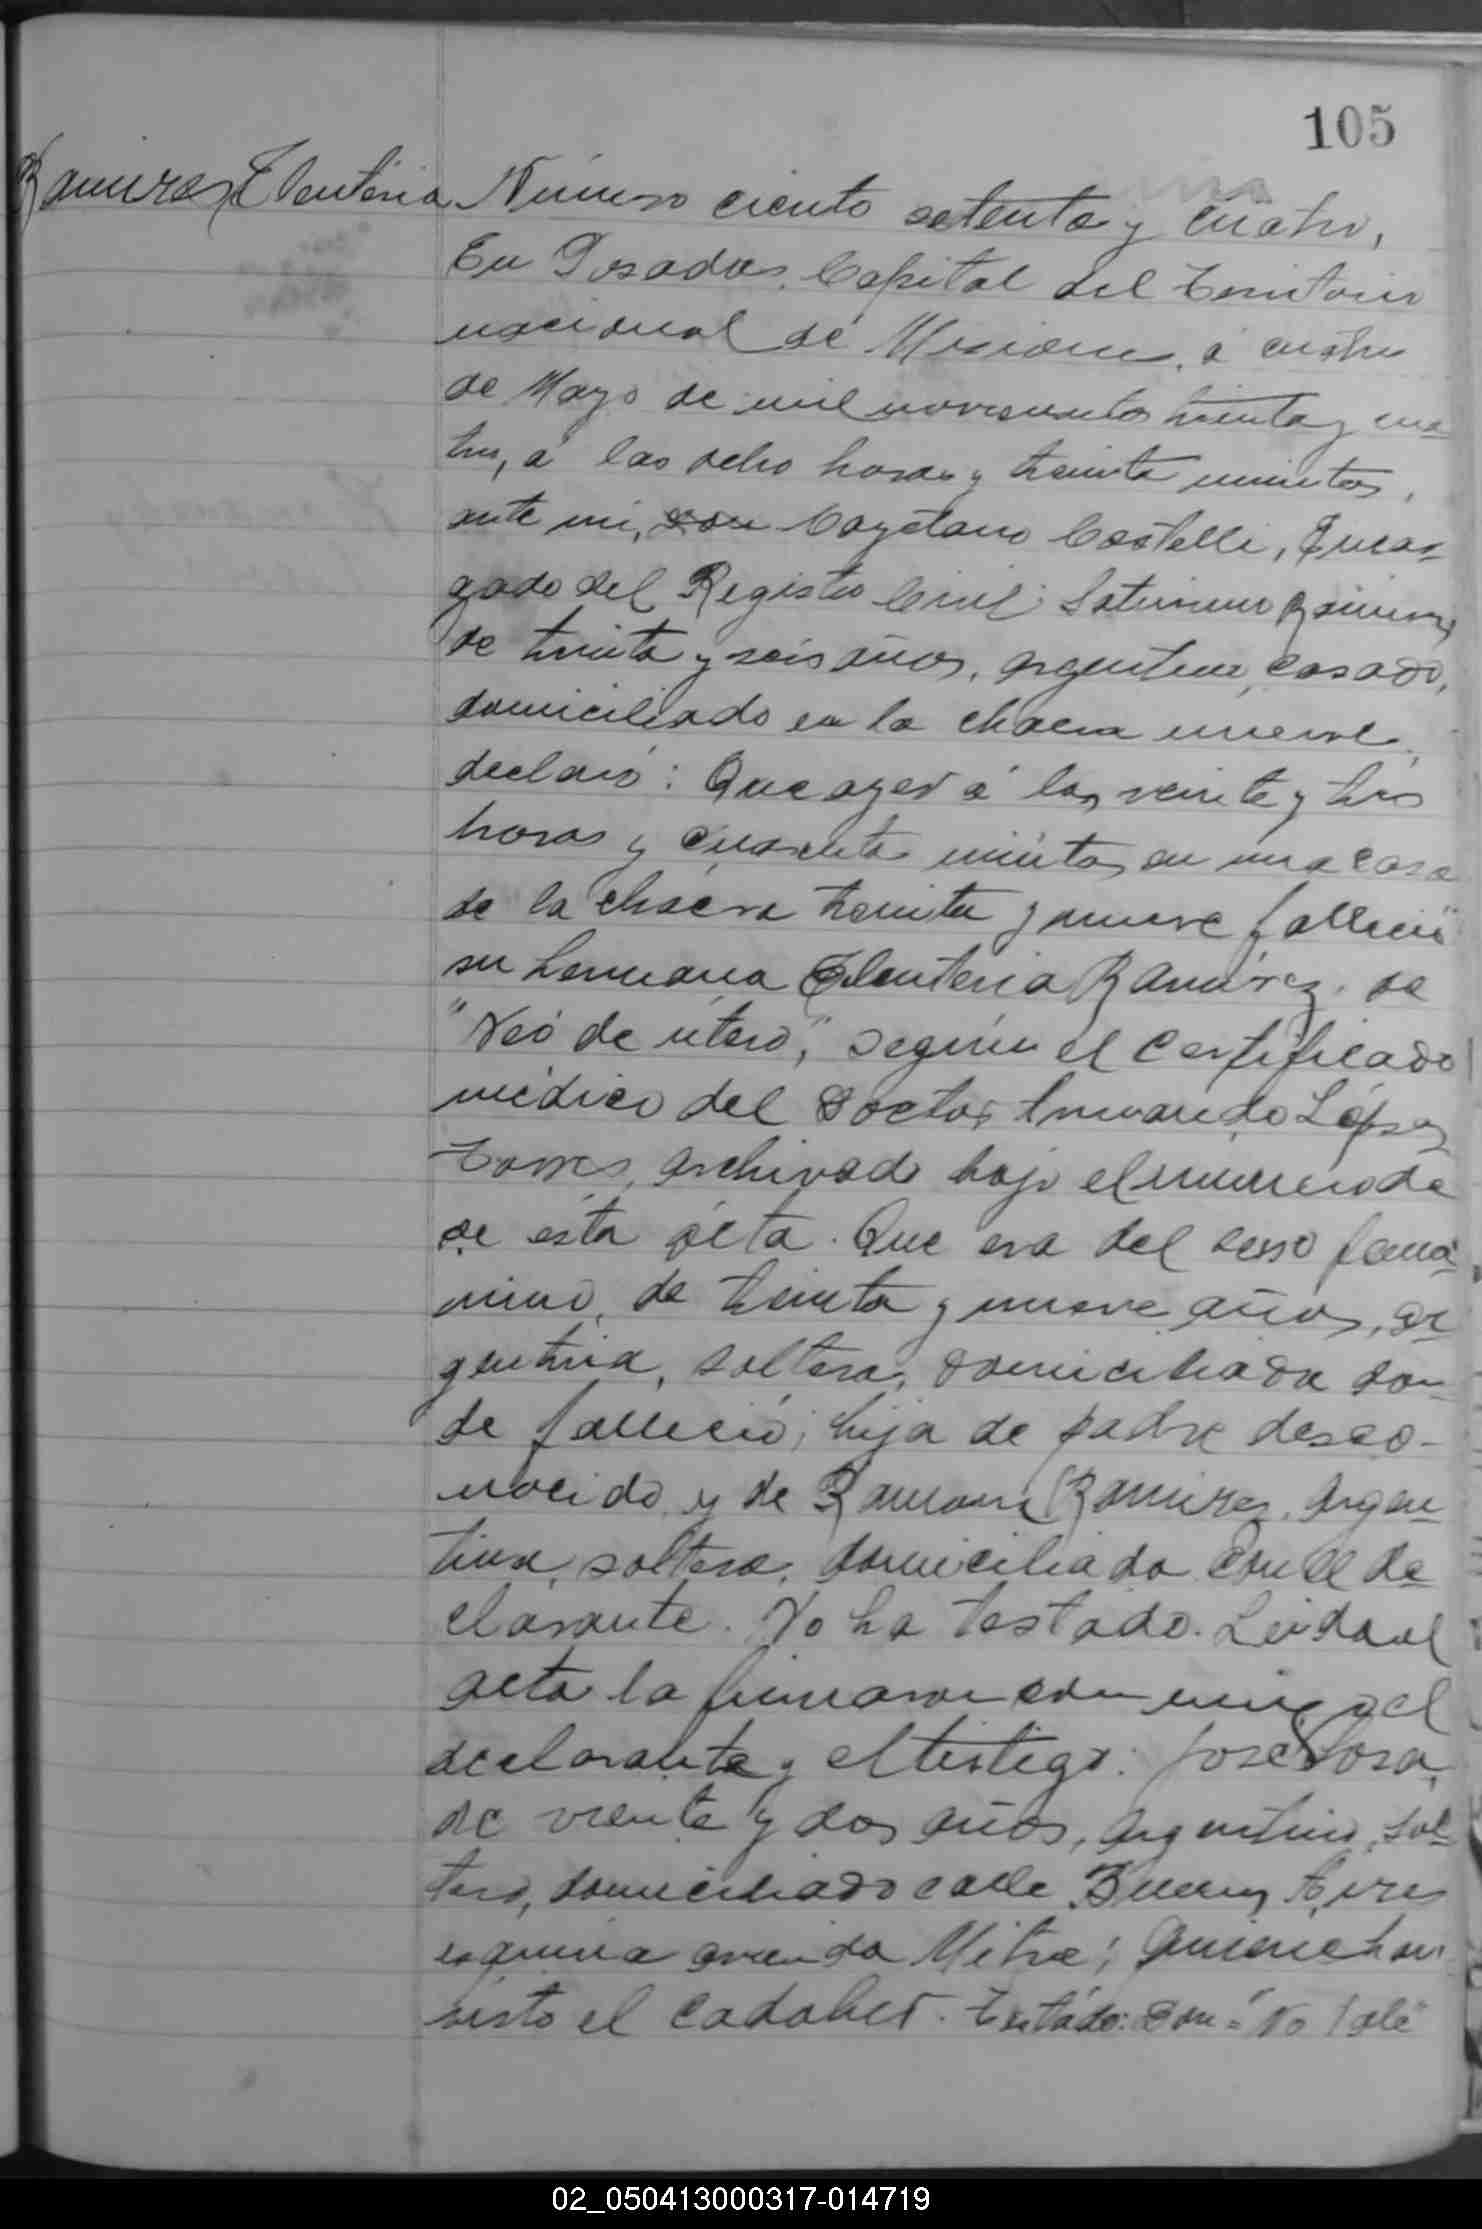 105
Ramirez Eleuteria
Número ciento setenta y cuatro,
En Posadas, Capital del Territorio
nacional de Misiones, á cuatro
de Mayo de mil novecientos treinta y cua-
tro, á las ocho horas y treinta minutos,
ante mi, don Cayetano Castelli, Encar-
gado del Registro Civil: Saturnino Ramirez
de treinta y seis años, argentino, casado,
domiciliado en la chacra nueve,
declaró: Que ayer á las veinte y tres
horas y cuarenta minutos en una casa
de la chacra treinta y nueve falleció
su hermana Eleuteria Ramírez, de
"Neo de útero", según el certificado
médico del Doctor Armando López
Torres, archivado bajo el numero de
de esta acta. Que era del sexo feme-
nino, de treinta y nueve años, ar-
gentina, soltera, domiciliada don-
de falleció; hija de padre desco-
nocido y de Ramona Ramirez, argen-
tina, soltera, domiciliada con el de-
clarante. No ha testado. Leida el
acta la firmaron con migo el
declarante y el testigo: José Sosa,
de veinte y dos años, argentino, sol-
tero, domiciliado calle Buenos Aires
esquina avenida Mitre; quienes han
visto el cadaber. Testado: don = No Vale
02_050413000317-014719